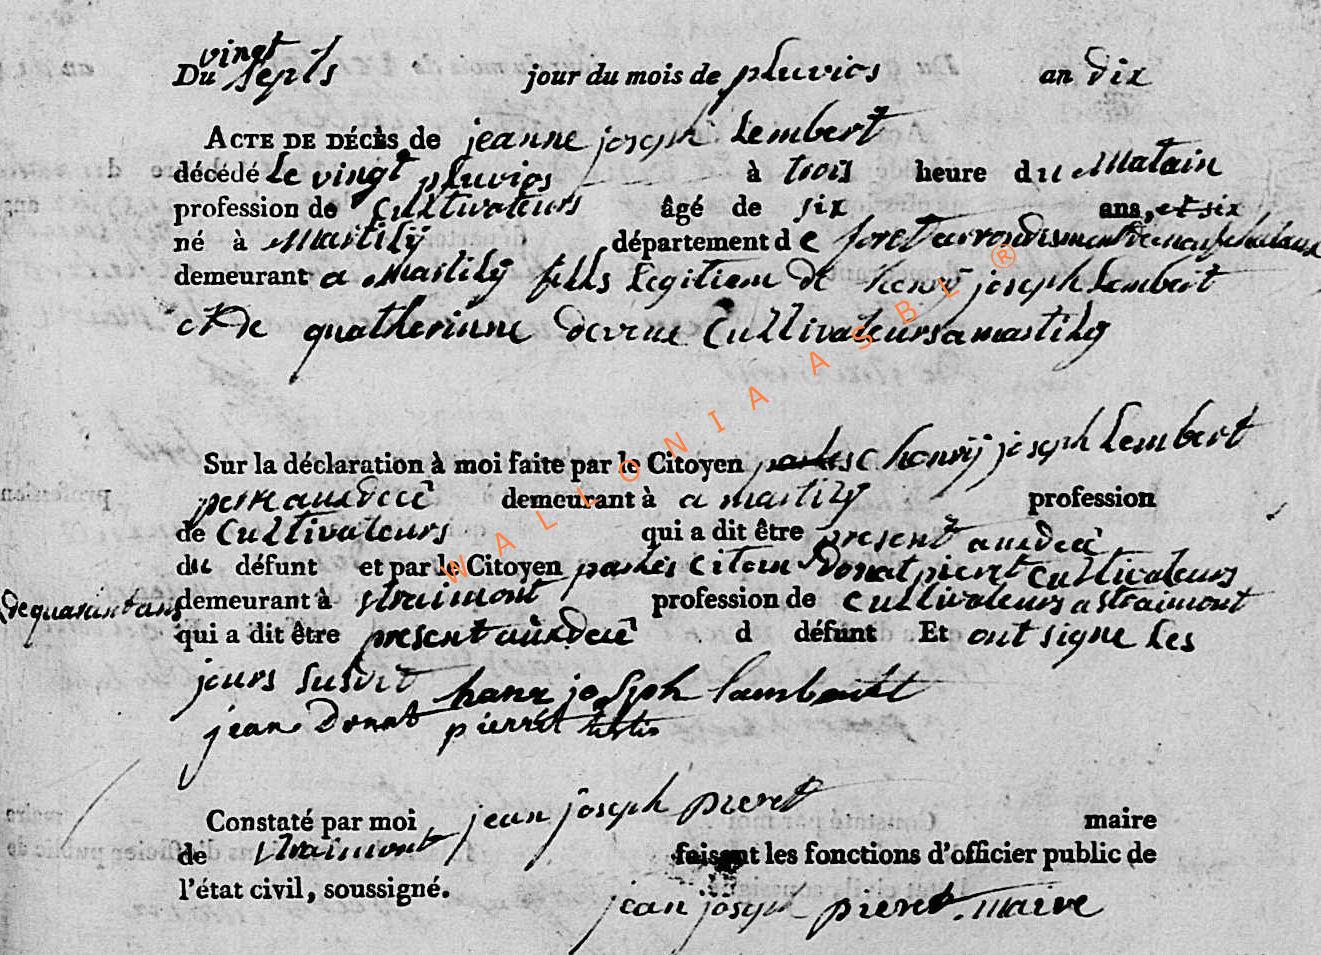 vingt
Du septs jour du mois de pluvios an dix
ACTE DE DÉCÈS de jeanne joseph Lembert
décédé Le vingt pluvios à trois heure du Matain
profession de Cultivateurs âgé de six ans, et six
né à Martilÿ département de foret arrondisement de
demeurant a Martilÿ fills Legitiem de henrÿ joseph Lembert
et de quatherinne Cultivateurs a martilÿ
Sur la déclaration à moi faite par le Citoyen henrÿ joseph Lembert
demeurant à a martilÿ profession
de Cultivateurs qui a dit être present
du défunt et par le Citoyen Donat pieret Cultivateurs
de quarent ans demeurant à straimont profession de Cultivateurs a straimont
qui a dit être present d défunt Et ont signe Les
jours susdit joseph
jean Donat pierret
Constaté par moi jean joseph pieret maire
de straimont faisant les fonctions d'officier public de
l'état civil, soussigné.
jean joseph pieret. maire
WALLONIA ASBL ®